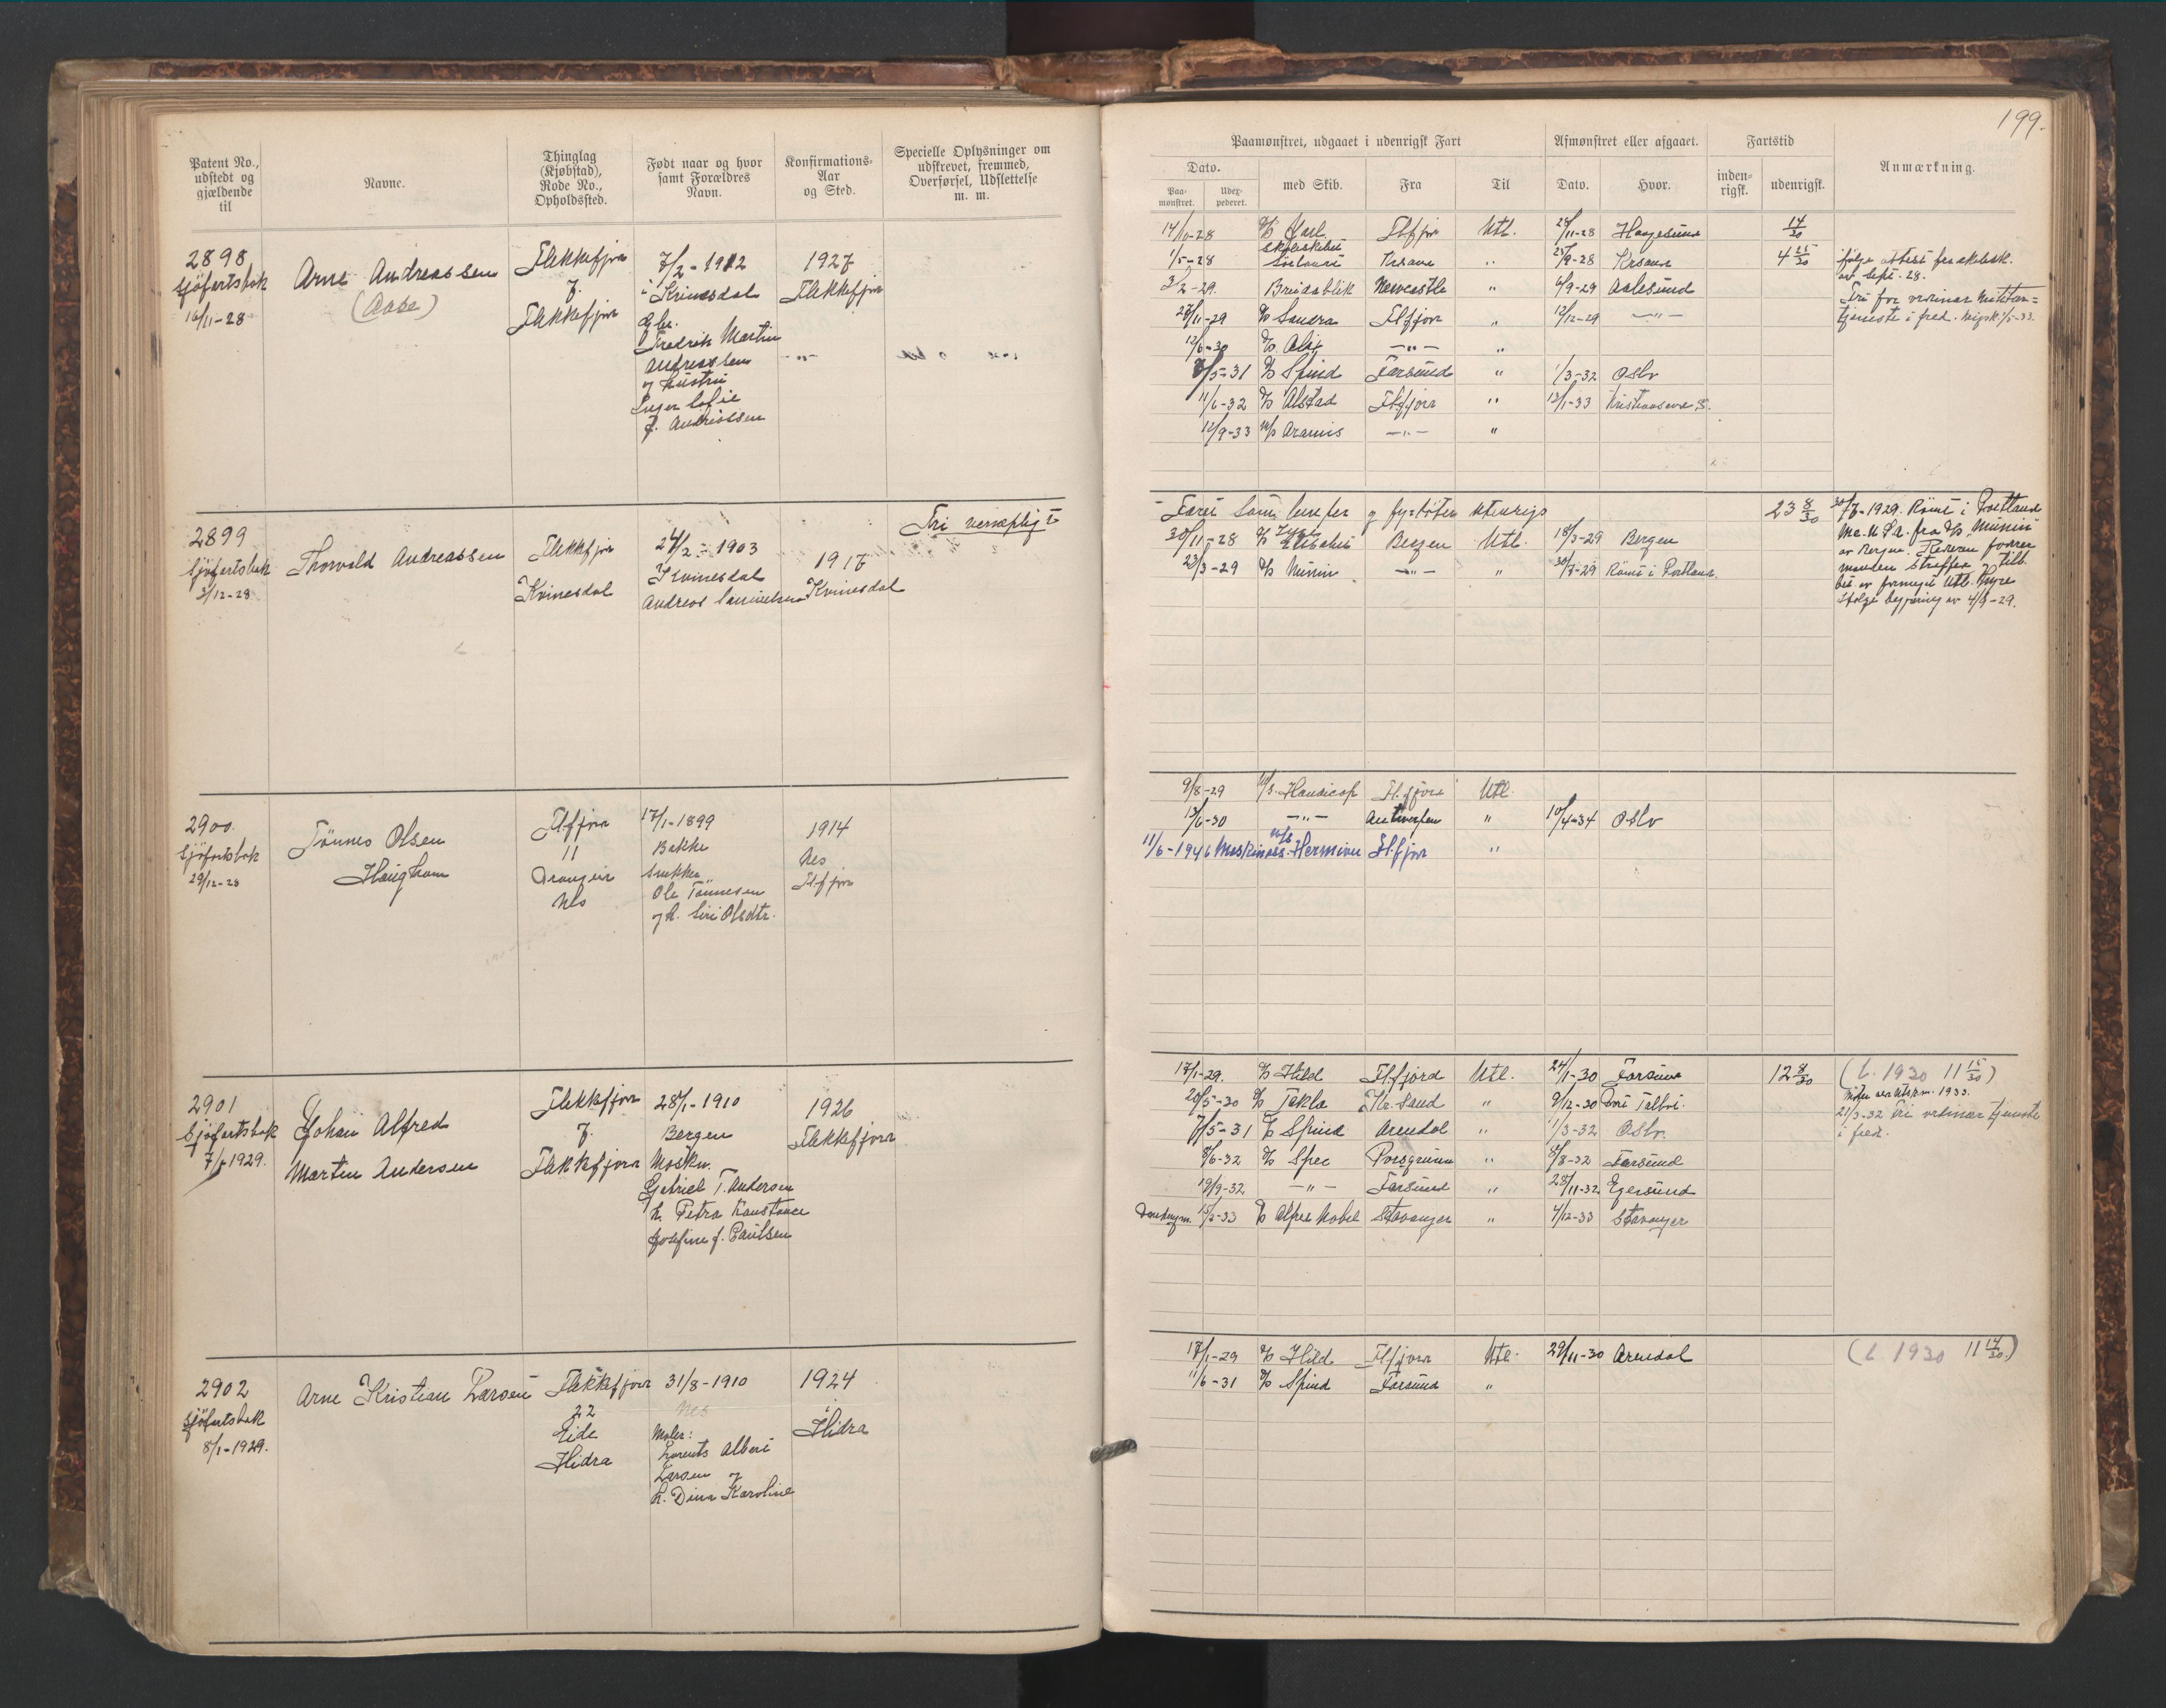 199.
Patent No., udstedt og gjældende til
Navne.
Thinglag (Kjøbstad), Rode No., Opholdssted.
Født naar og hvor samt Forældres Navn.
Konfirmations-Aar og Sted.
Specielle Oplysninger om udskrevet, fremmed, Overførsel, Udslettelse m. m.
Paamønstret, udgaaet i udenrigsk Fart
Afmønstret eller afgaaet.
Fartstid
Dato.
Paa-mønstret.
Udex-pederet.
med Skib.
Fra
Til
Dato.
Hvor.
inden-rigsk.
udenrigsk.
Anmærkning.
2898
Sjöfartsbok
16/11-28
Arne Andreassen
(Aase)
Flekkefjor
7.
Flekkefjor
7/2-1912
i Kvinesdal
Fredrik Martin
Andreassen
og hustru
Inger Sofie
f. Andreassen
1927
Flekkefjor
14/10-28 D/S Flfjor Utl. 28/11-28 Haugesund 14/30
1/5-28 skoleskibet Krsand " 25/9-28 Krsand 4 25/30
3/2-29. Breidablik Newcastle " 6/9-29 Aalesund
28/11-29 D/S Sandra Flfjor " 12/12-29 -"-
12/6-30 D/S -"- "
8/5-31 D/S Spind Farsund " 1/3-32 Oslo
11/6-32 D/S Alstad Flfjor " 12/1-33 Kristiansand S.
12/9-33 M/S Aramis -"- "
ifølge attest fra
av Sept. 28.
Fri for ordinær militær-
tjeneste i fred. 1/5-33.
2899
Sjöfartsbok
3/12-28
Thorvald Andreassen
Flekkfjor
Kvinesdal
24/2-1903
Kvinesdal
Andreas
1917
Kvinesdal
Fri vernepligt
Faret som og fyrböter utenrigs 23 8/30
30/11-28 D/S Elisabet Bergen Utl. 18/3-29 Bergen
23/3-29 D/S Munin -"- " 30/7-29 Römt i Portland.
30/7-1929. Römt i Portland
Me. U.S.A. fra D/S Munin
av Bergen. Rederen
manden straffet og
av fornyet Utl. Hyre
ifølge begjæring av 4/9-29.
2900.
Sjöfartsbok
29/12-28
Tönnes Olsen
Haughom
Flfjor
11
Drangeid
Nes
17/1-1899
Bakke
Ole Tönnesen
og h. Siri Olsdtr.
1914
Nes
Flfjor
9/8-29 M/S. Handicap Fl.fjor Utl.
13/6-30 -"- Antwerpen " 10/4-34 Oslo
11/6-1946 Maskinass. M/S Hermion Fl.fjor "
2901
Sjöfartsbok
7/1-1929.
Johan Alfred
Martin Andersen
Flekkefjor
7.
Flekkefjor
28/1-1910
Bergen
Maskn.
Gabriel T. Andersen
h. Petra Konstance
Josefine f. Paulsen
1926
Flekkefjor
17/1-29. D/S Hild Fl.fjord Utl. 24/1-30 Farsund 12 8/30
20/5-30 D/S Tekla Kr.Sand " 9/12-30
7/5-31 D/S Spind Arendal " 1/3-32 Oslo.
8/6-32 D/S Spec Porsgrunn " 8/8-32 Farsund
19/9-32 -"- Farsund " 28/11-32 Egersund
Donkeym. 15/2-33 D/S Alfred Nobel Stavanger " 4/12-33 Stavanger
(t. 1930 11 15/30)
1933.
21/3-32 Fri ordinær tjeneste
i fred.
2902
Sjöfartsbok
8/1-1929.
Arne Kristian Larsen
Flekkefjor
22
Eide
Hidra
31/8-1910
Nes
Maler:
Lorents Albert
Larsen og
h. Dina Karoline
1924
i
Hidra
17/1-29 D/S Hild Fl.fjor Utl. 29/11-30 Arendal
11/6-31 D/S Spind Farsund "
(t. 1930 11 14/30.)